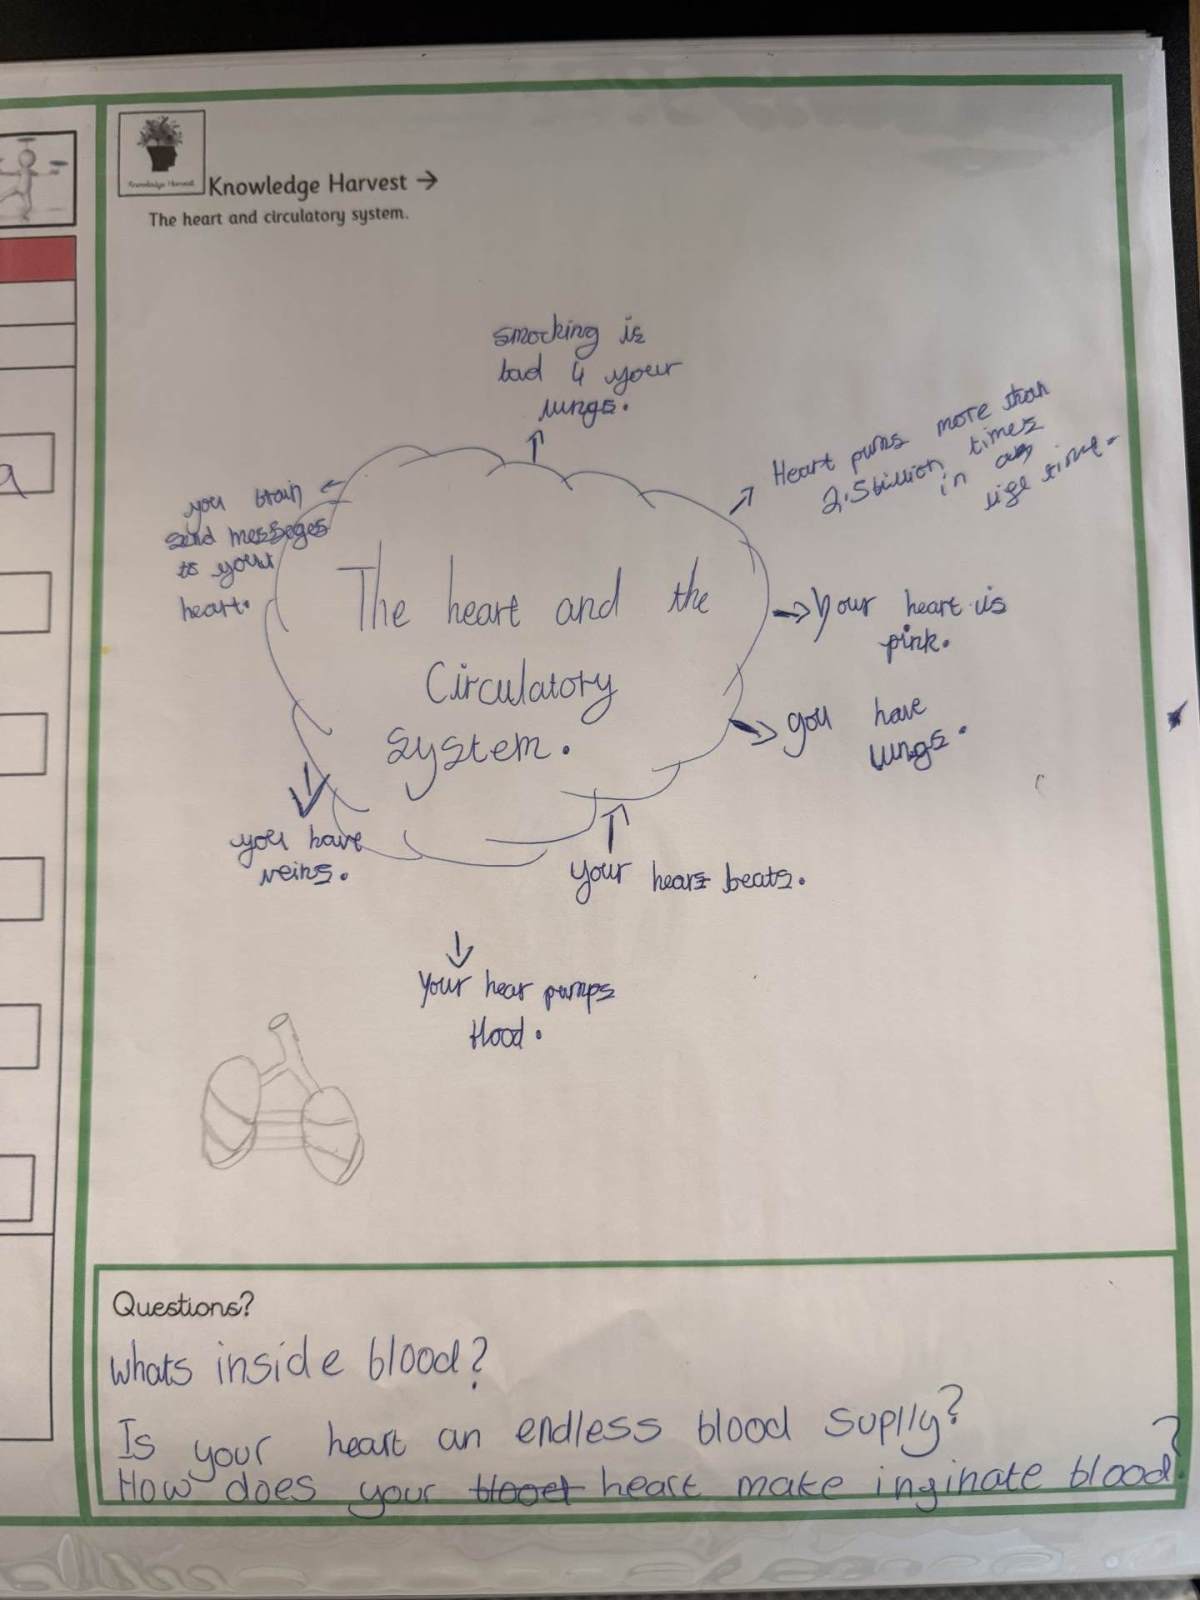 Knowledge Harvest
Knowledge Harvest →
The heart and circulatory system.
smocking is
bad 4 your
lungs.
Heart pums more than
2.5 billion times
in a
life time.
you brain
send messeges
to your
heart.
The heart and the
Circulatory
system.
Your heart is
pink.
you have
lungs.
you have
veins.
your heart beats.
Your hear pumps
blood.
a
Questions?
whats inside blood?
Is your heart an endless blood suplly?
How does your heart make inginate blood?